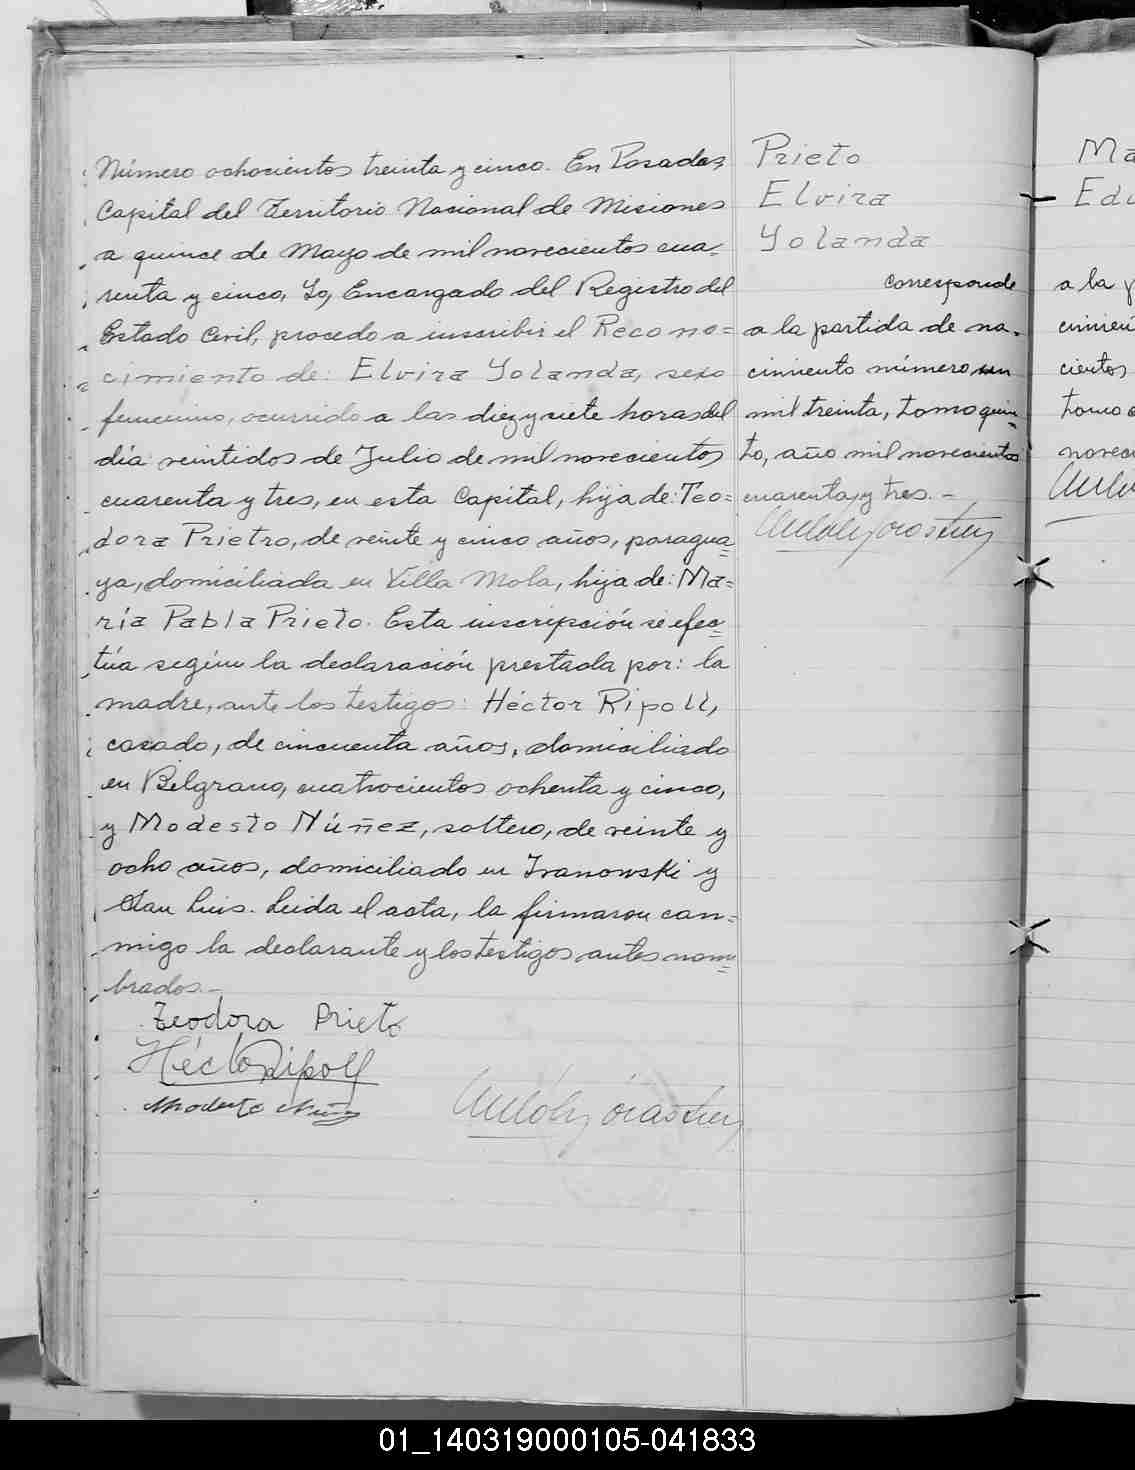 Número ochocientos treinta y cinco. En Posadas,
Capital del Territorio Nacional de Misiones
a quince de Mayo de mil novecientos cua-
renta y cinco, Yo, Encargado del Registro del
Estado Civil, procedo a inscribir el Recono=
cimiento de: Elvira Yolanda, sexo
femenino, ocurrido a las diez y siete horas del
día veintidos de Julio de mil novecientos
cuarenta y tres, en esta Capital, hija de: Teo=
dora Prietro, de veinte y cinco años, paragua=
ya, domiciliada en Villa Mola, hija de: Ma=
ría Pabla Prieto. Esta inscripción se efec=
túa según la declaración prestada por: la
madre, ante los testigos: Héctor Ripoll,
casado, de cincuenta años, domiciliado
en Belgrano, cuatrocientos ochenta y cinco,
y Modesto Núñez, soltero, de veinte y
ocho años, domiciliado en Ivanowski y
San Luis. Leída el acta, la firmaron con=
migo la declarante y los testigos antes nom=
brados.-
Teodora Prieto
Héctor Ripoll
Modesto Núñez
Prieto
Elvira
Yolanda
corresponde
a la partida de na-
cimiento número un
mil treinta, tomo quin=
to, año mil novecientos
cuarenta y tres.-
Ma
Edu
a la p
cimien
cientos
tomo
novec
01_140319000105-041833